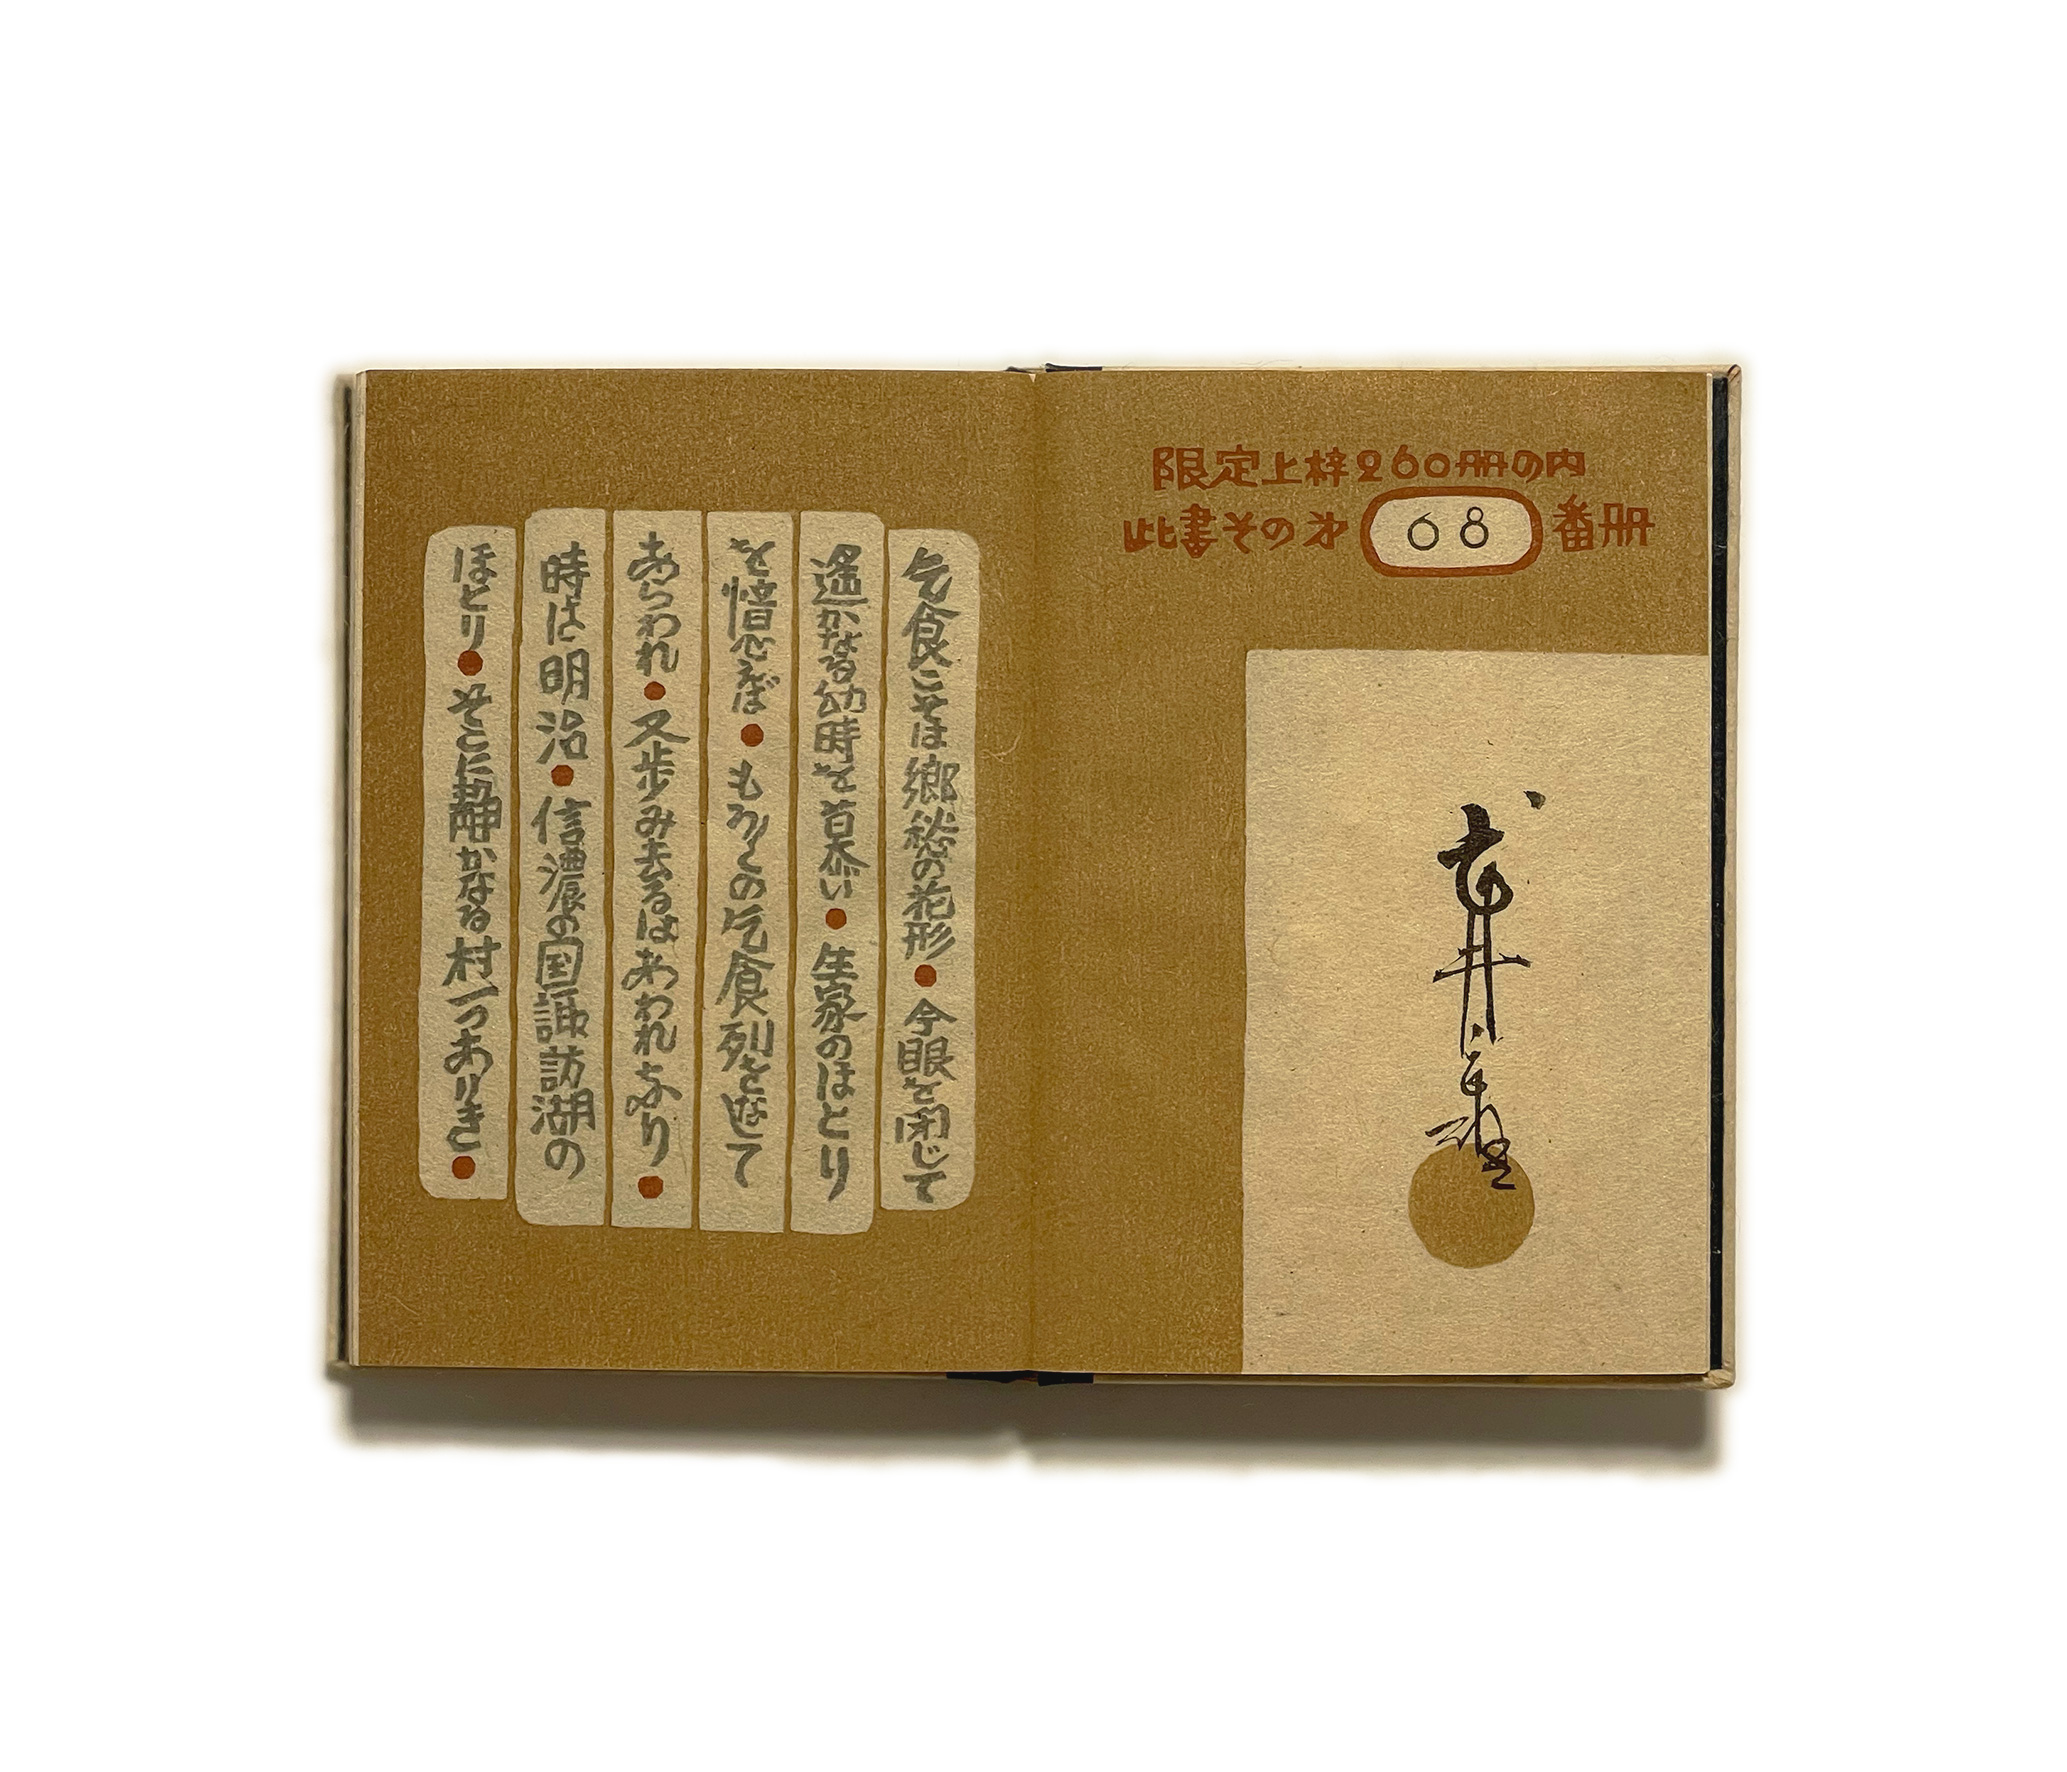 限定上梓260冊の内
此書その第68番冊
武井武雄
乞食こそは郷愁の花形●今眼を閉じて
遙かなる幼時を慕い●生家のほとり
を憶えば●もろ〱の乞食列をなして
あらわれ●又歩み去るはあわれなり●
時は明治●信濃の国諏訪湖の
ほとり●そこに静かなる村一つありき●